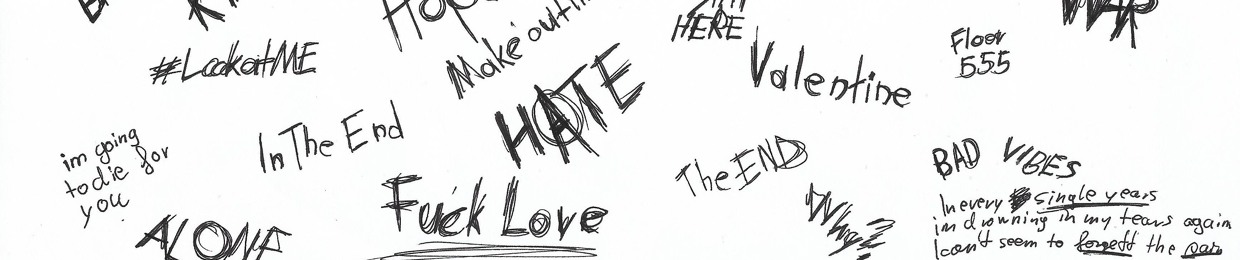 HERE
#LookatME
Make out
Valentine
Floor
555
HATE
In The End
im going
to die for
you
The END
BAD VIBES
Fuck Love
In every single years
im drowning in my tears again
I can't seem to forgett the pain
ALONE